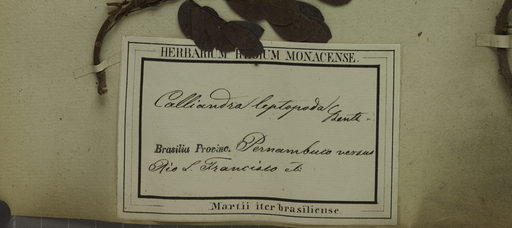 HERBARIUM REGIUM MONACENSE.
Calliandra leptopoda Benth.
Brasilia Provinc. Pernambuco versus
Rio S. Francisco
Martii iter brasiliense.